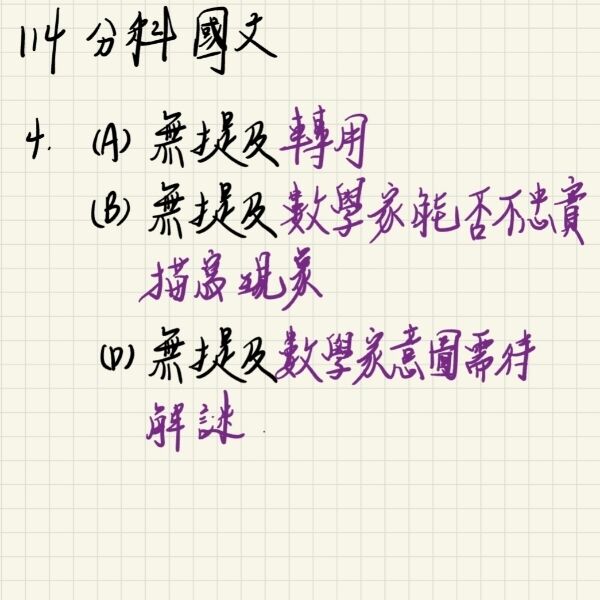 114 分科 國文
4. (A) 無提及轉用
(B) 無提及數學家能否不忠實
描寫現象
(D) 無提及數學家意圖需待
解謎.